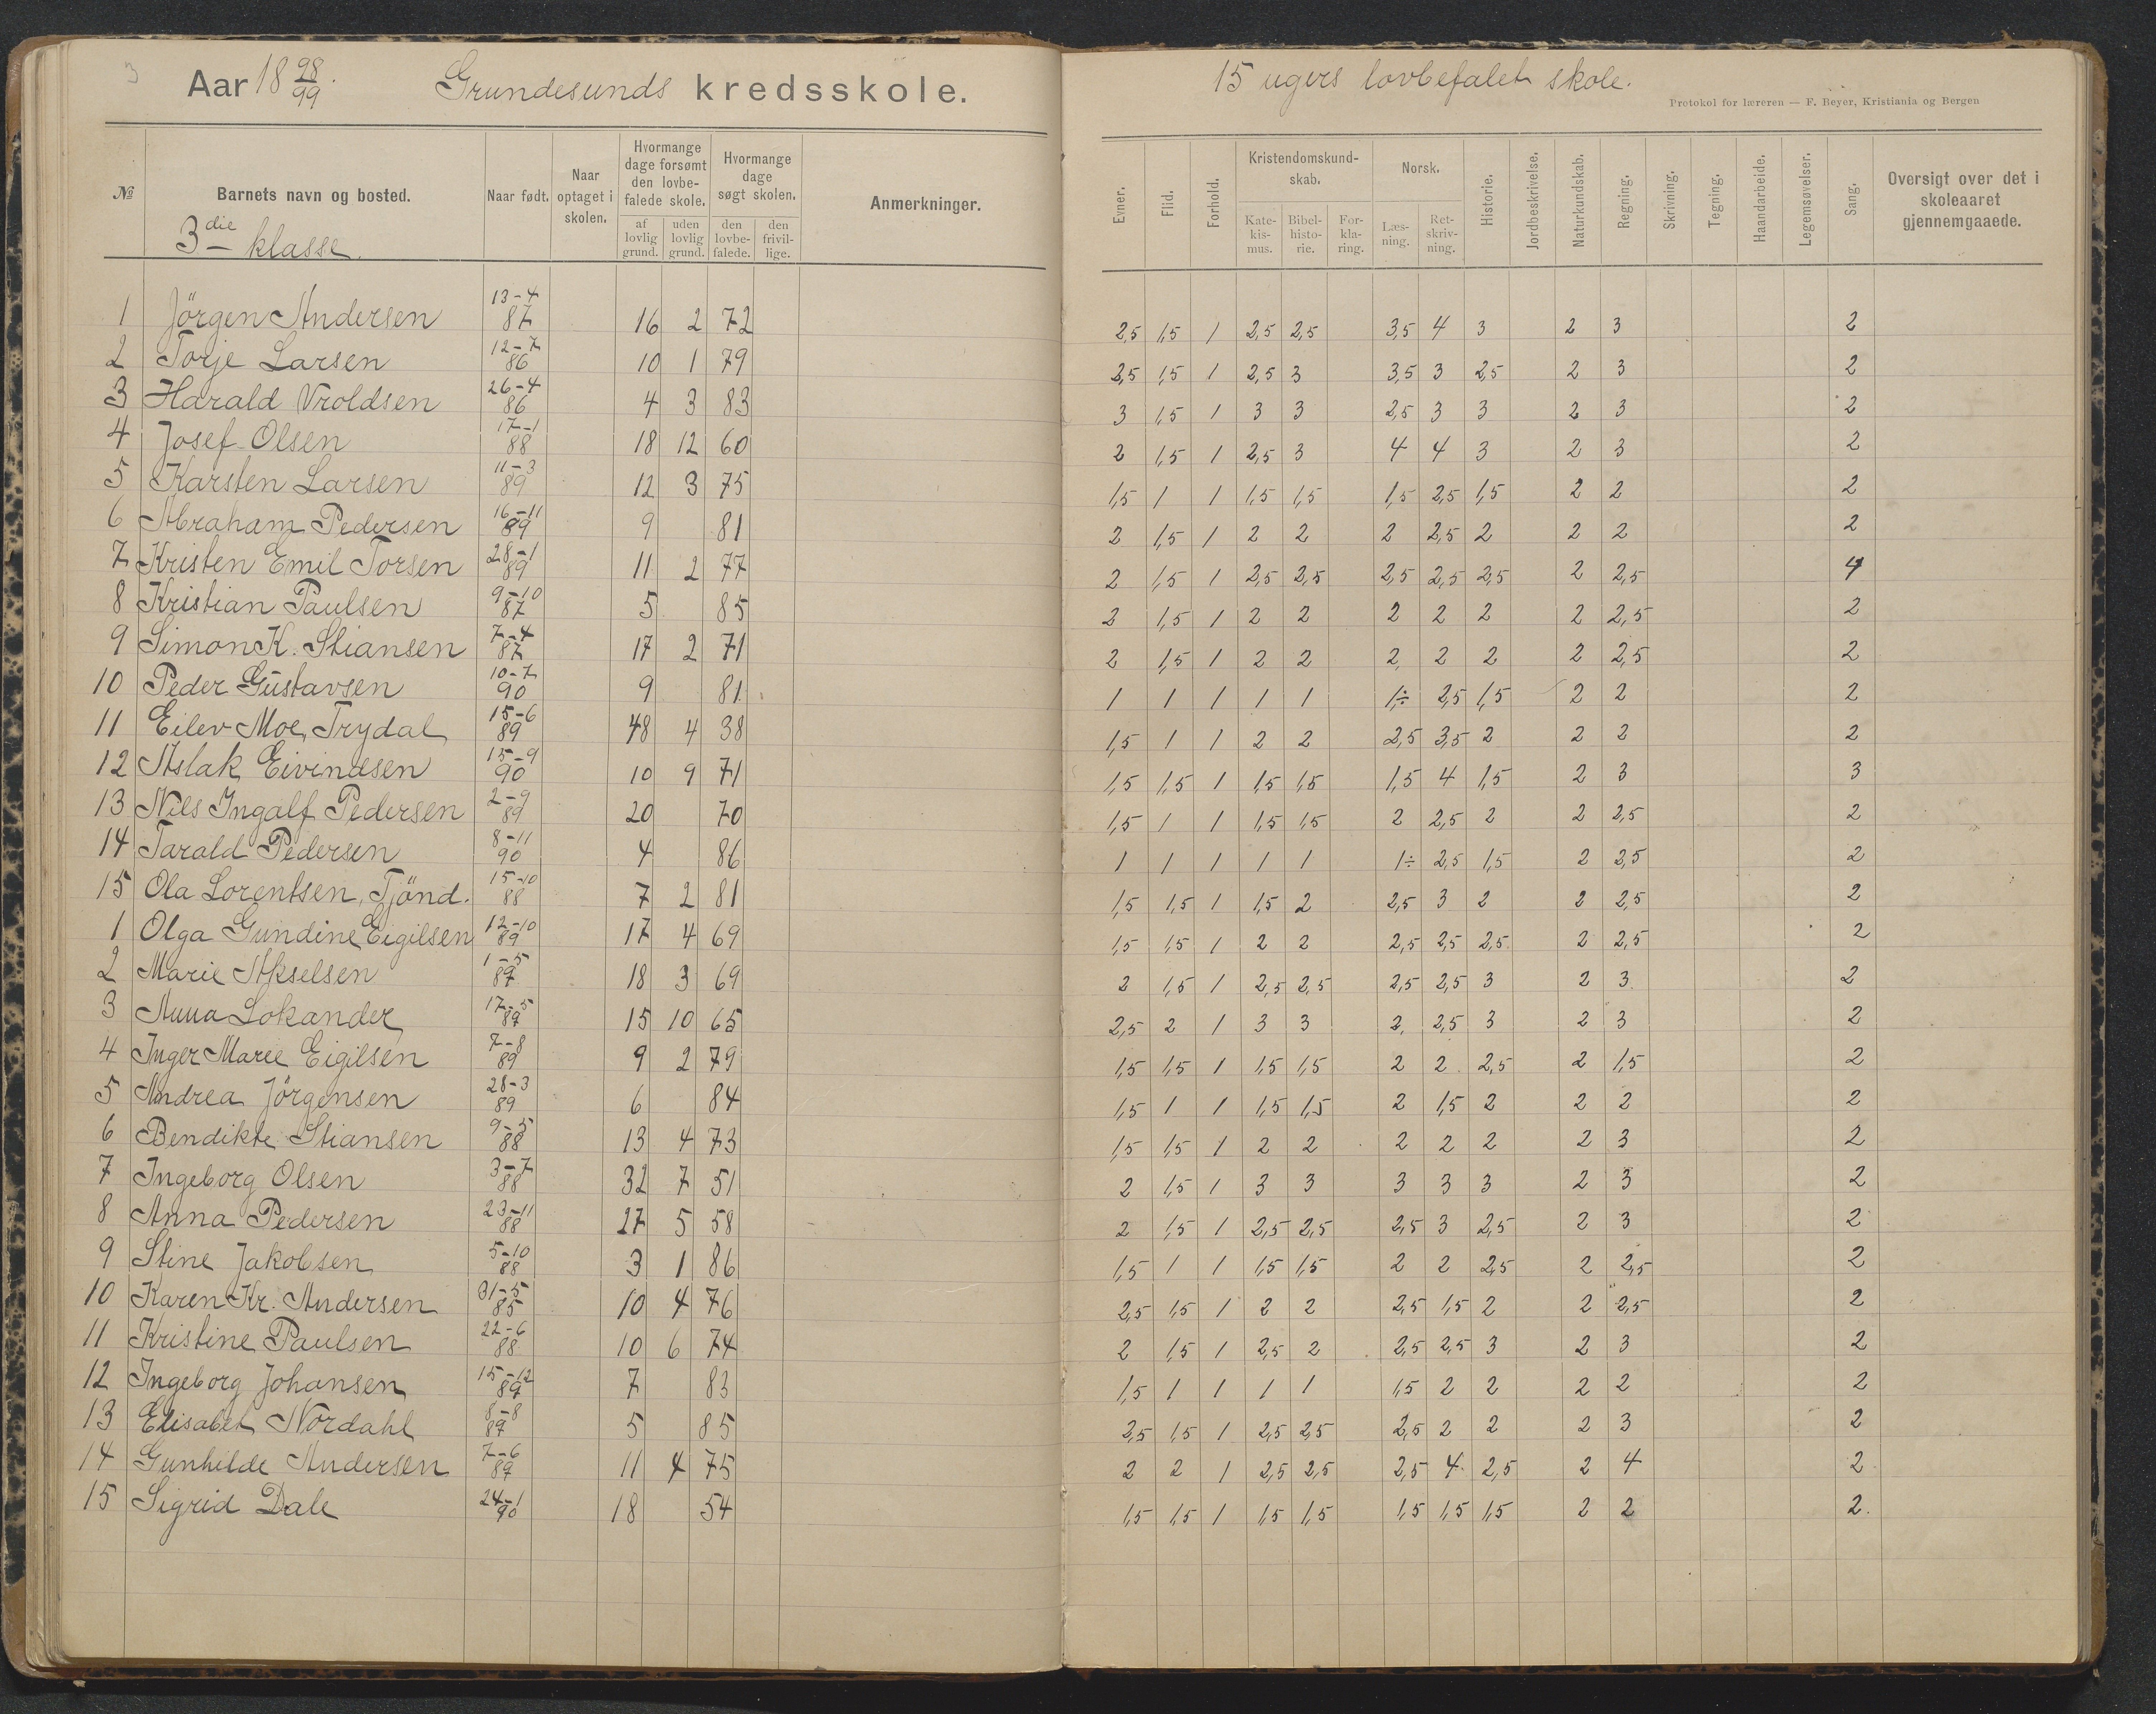 3
Aar 18 98/99. Grundesunds kredsskole.
15 ugers lovbefalet skole.
Protokol for læreren — F. Beyer, Kristiania og Bergen
№ Barnets navn og bosted. Naar født. Naar optaget i skolen. Hvormange dage forsømt den lovbefalede skole. af lovlig grund. uden lovlig grund. Hvormange dage søgt skolen. den lovbefalede. den frivillige. Anmerkninger. Evner. Flid. Forhold. Kristendomskundskab. Katekismus. Bibelhistorie. Forklaring. Norsk. Læsning. Retskrivning. Historie. Jordbeskrivelse. Naturkundskab. Regning. Skrivning. Tegning. Haandarbeide. Legemsøvelser. Sang. Oversigt over det i skoleaaret gjennemgaaede.
3die klasse.
1 Jörgen Andersen 13-4 87 16 2 72 2,5 1,5 1 2,5 2,5 3,5 4 3 2 3 2
2 Torje Larsen 12-7 86 10 1 79 2,5 1,5 1 2,5 3 3,5 3 2,5 2 3 2
3 Harald Vroldsen 26-4 86 4 3 83 3 1,5 1 3 3 2,5 3 3 2 3 2
4 Josef Olsen 17-1 88 18 12 60 2 1,5 1 2,5 3 4 4 3 2 3 2
5 Karsten Larsen 11-3 89 12 3 75 1,5 1 1 1,5 1,5 1,5 2,5 1,5 2 2 2
6 Abraham Pedersen 16-11 89 9 81 2 1,5 1 2 2 2 2,5 2 2 2 2
7 Kristen Emil Torsen 28-1 89 11 2 77 2 1,5 1 2,5 2,5 2,5 2,5 2,5 2 2,5 4
8 Kristian Paulsen 9-10 87 5 85 2 1,5 1 2 2 2 2 2 2 2,5 2
9 Simon K. Stiansen 7-4 87 17 2 71 2 1,5 1 2 2 2, 2 2 2 2,5 2
10 Peder Gustavsen 10-7 90 9 81 1 1 1 1 1 1,÷ 2,5 1,5 2 2 2
11 Eilev Moe, Trydal 15-6 89 48 4 38 1,5 1 1 2 2 2,5 3,5 2 2 2 2
12 Aslak Eivindsen 15-9 90 10 9 71 1,5 1,5 1 1,5 1,5 1,5 4 1,5 2 3 3
13 Nils Ingalf Pedersen 2-9 89 20 70 1,5 1 1 1,5 1,5 2 2,5 2 2 2,5 2
14 Tarald Pedersen 8-11 90 4 86 1 1 1 1 1 1÷ 2,5 1,5 2 2,5 2
15 Ola Lorentsen, Tjönd. 15-10 88 7 2 81 1,5 1,5 1 1,5 2 2,5 3 2 2 2,5 2
1 Olga Gundine Eigilsen 12-10 89 17 4 69 1,5 1,5 1 2 2 2,5 2,5 2,5 2 2,5 2
2 Marie Akselsen 1-5 87 18 3 69 2 1,5 1 2,5 2,5 2,5 2,5 3 2 3 2
3 Anna Lokander 17-5 87 15 10 65 2,5 2 1 3 3 2, 2,5 3 2 3 2
4 Inger Marie Eigilsen 7-8 89 9 2 79 1,5 1,5 1 1,5 1,5 2 2 2,5 2 1,5 2
5 Andrea Jörgensen 28-3 89 6 84 1,5 1 1 1,5 1,5 2 1,5 2 2 2 2
6 Bendikte Stiansen 9-5 88 13 4 73 1,5 1,5 1 2 2 2 2 2 2 3 2
7 Ingeborg Olsen 3-7 88 32 7 51 2 1,5 1 3 3 3 3 3 2 3 2
8 Anna Pedersen 23-11 88 27 5 58 2 1,5 1 2,5 2,5 2,5 3 2,5 2 3 2
9 Stine Jakobsen 5-10 88 3 1 86 1,5 1 1 1,5 1,5 2 2 2,5 2 2,5 2
10 Karen Kr. Andersen 31-5 85 10 4 76 2,5 1,5 1 2 2 2,5 1,5 2 2 2,5 2
11 Kristine Paulsen 22-6 88 10 6 74 2 1,5 1 2,5 2 2,5 2,5 3 2 3 2
12 Ingeborg Johansen 15-12 87 7 83 1,5 1 1 1 1 1,5 2 2 2 2 2
13 Elisabet Nordahl 8-8 87 5 85 2,5 1,5 1 2,5 2,5 2,5 2 2 2 3 2
14 Gunhilde Andersen 7-6 87 11 4 75 2 2 1 2,5 2,5 2,5 4 2,5 2 4 2
15 Sigrid Dale 24-1 90 18 54 1,5 1,5 1 1,5 1,5 1,5 1,5 1,5 2 2 2.